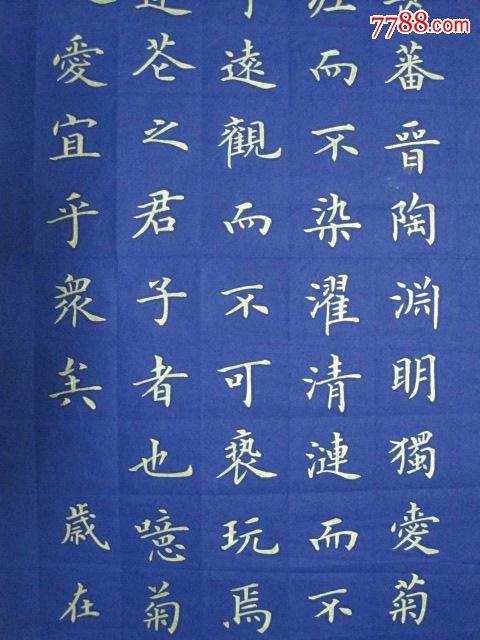 蕃晋陶渊明獨愛菊
而不染濯清漣而不
遠觀而不可褻玩焉
花之君子者也噫菊
愛宜乎衆矣 歲在
7788.com